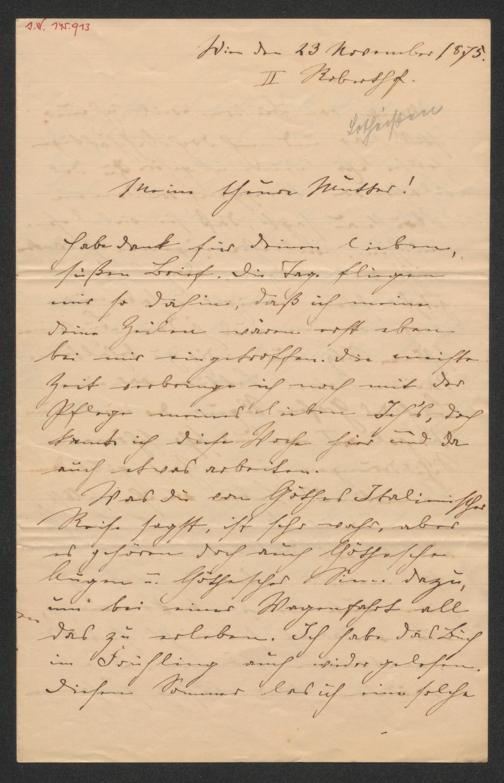 J.N. 145.913
Wien den 23 November 1875.
II
Lotheißen
Meine theure Mutter!
Habe dank für deinen lieben,
süßen Brief. Die Tage fliegen
mir so dahin, daß ich meine
deine Zeilen wären erst eben
bei mir eingetroffen. Die meiste
Zeit verbringe ich noch mit der
Pflege meines lieben Ich's, doch
konnte ich diese Woche hier und da
auch etwas arbeiten.
Was du von Göthes Italienischer
Reise sagst, ist sehr wahr, aber
es gehören doch auch Göthesche
Augen u. Göthescher Sinn dazu,
um bei einer Wagenfahrt all
das zu erleben. Ich habe das Buch
im Frühling auch wider gelesen.
Diesen Sommer las ich eine solche